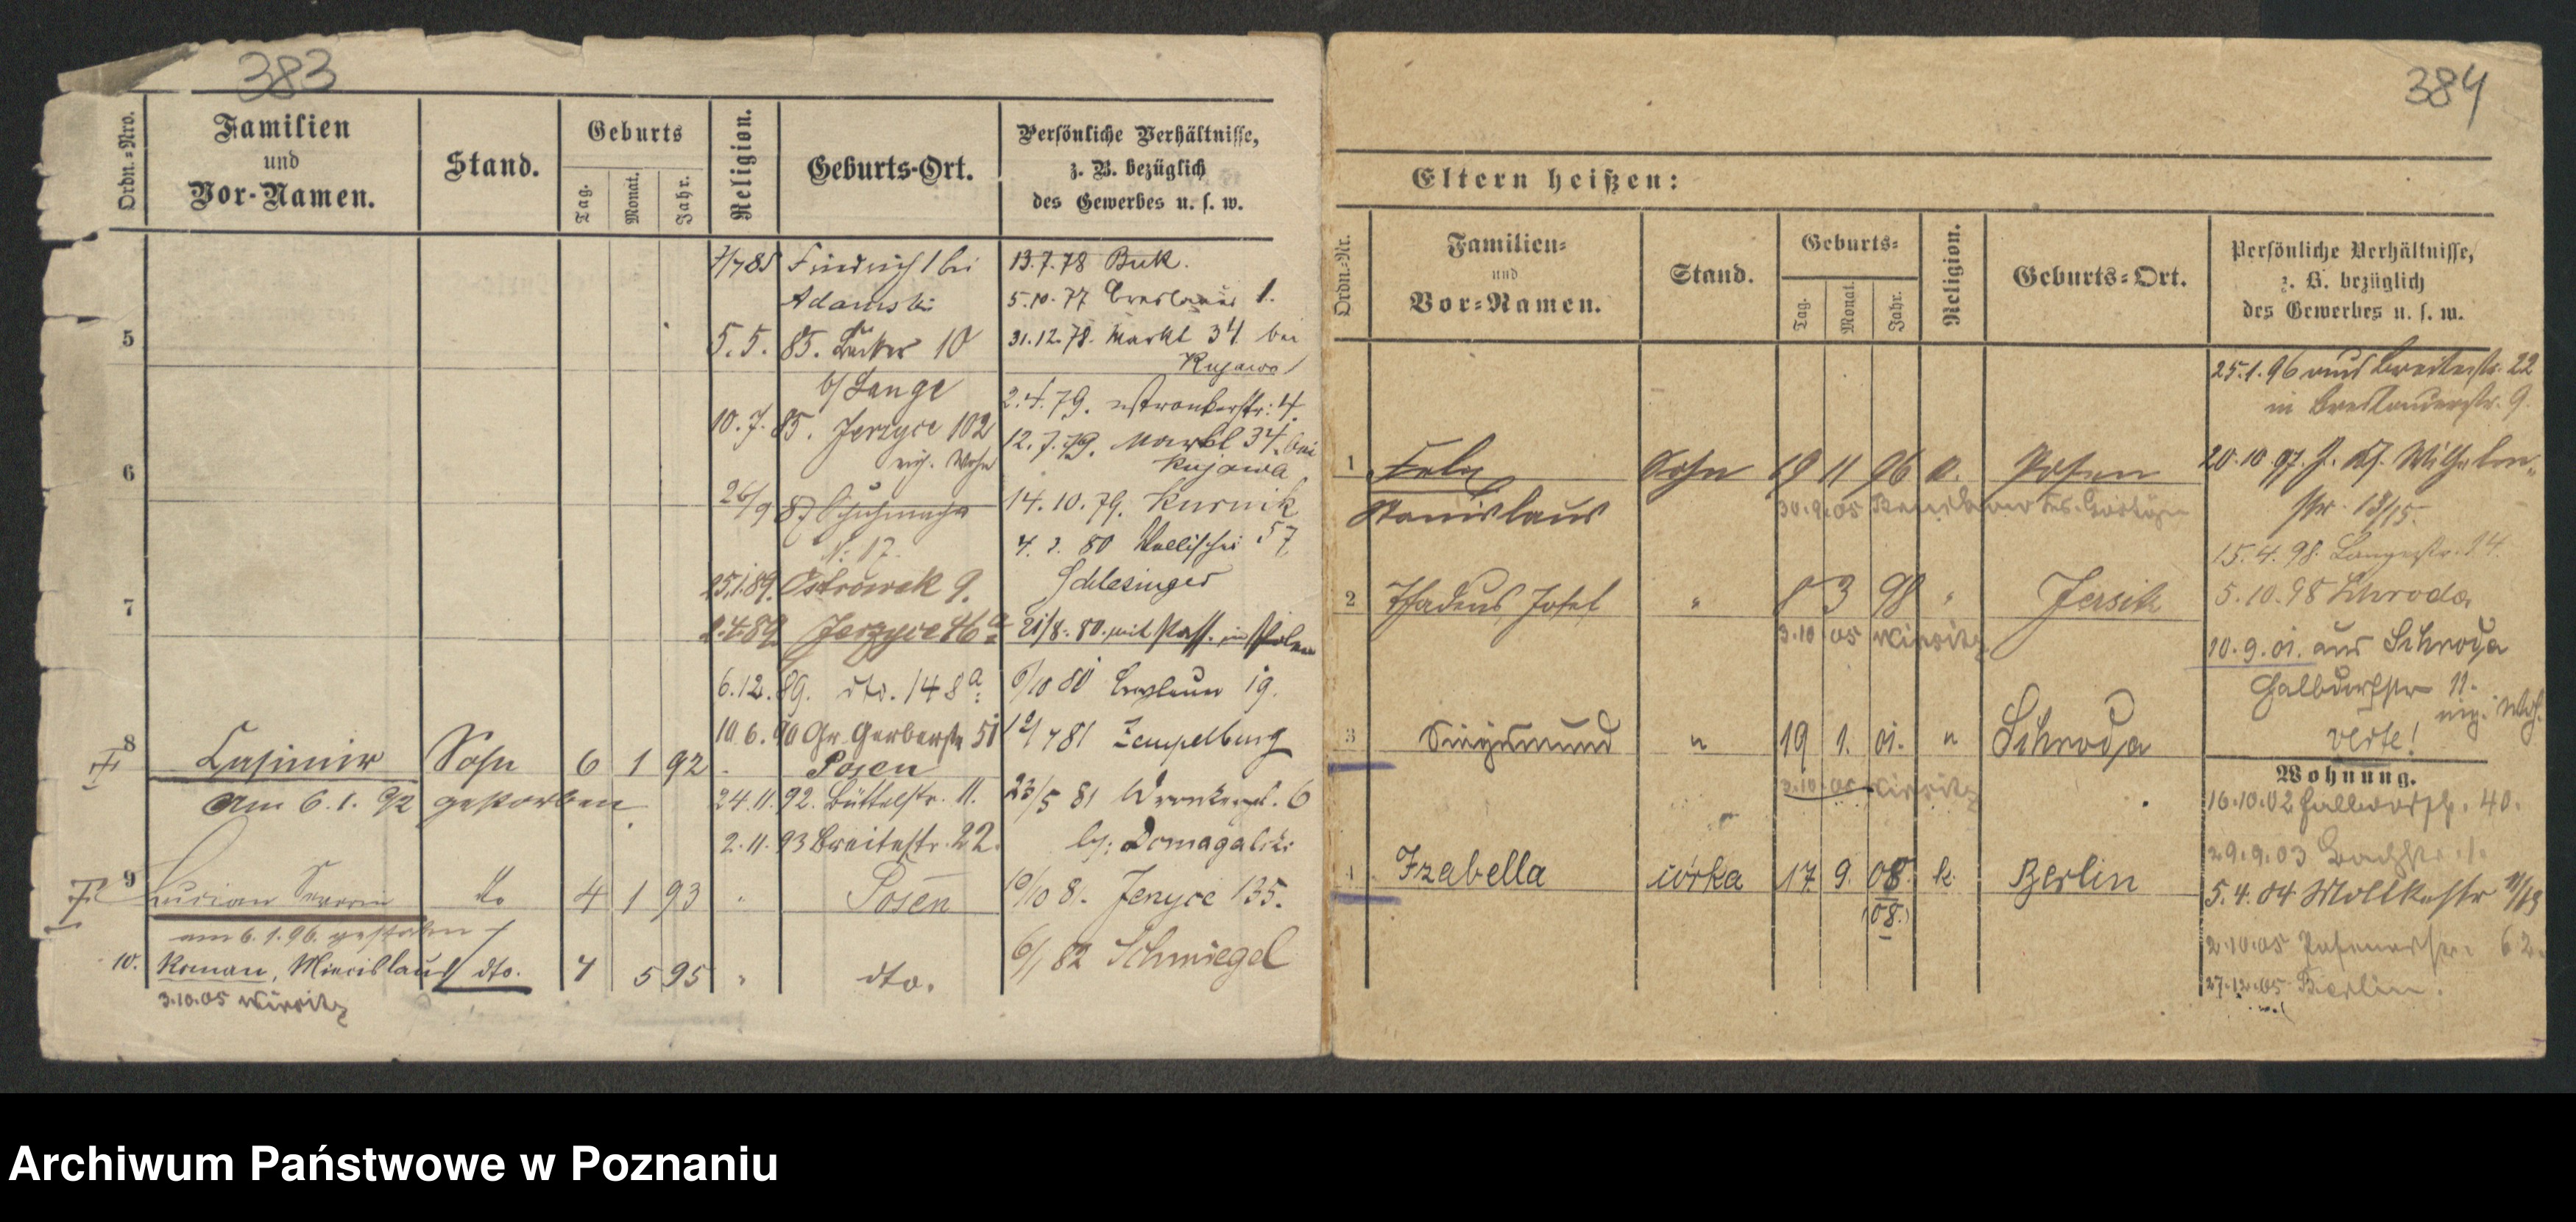 383
Ordn.-Nro.
Familien
und
Vor-Namen.
Stand.
Geburts
Tag.
Monat.
Jahr.
Religion.
Geburts-Ort.
Persönliche Verhältnisse,
z. B. bezüglich
des Gewerbes u. s. w.
5
6
7
8
Casimir Sohn 6 1 92 Posen
am 6. 1. 92 gestorben
9
Lucian do 4 1 93 " Posen
am 6. 1. 96. gestorben
10. Roman, Miecislaus dto. 7 5 95 " dto.
3.10.05 Wirsitz
7/7 85 Friedrichs bei
Adamski
5. 5. 85.
b/ Lange
10. 7. 85. Jerzyce 102
26/9 87
N: 17.
25.1.89. Ostrowek 9.
2.4.89 Jerzyce 46a
6.12.89. dto. 148a
10 6. 90 Gr. Gerberstr. 51
24. 11. 92. Büttelstr. 11.
2. 11. 93 Breitestr. 22.
13. 7. 78 Buk.
5. 10. 77 Breslauer 1.
31. 12. 78. Markt 34 bei
Kujawa
2. 4. 79. Wronkerstr: 4.
12. 7. 79. Markt 34. bei
Kujawa
14. 10. 79. Kurnik
4. 2. 80 Wallischei 57
Schlesinger
21/8. 80. mit Pass. in Polen
6/10 80 19.
12/7 81 Zempelburg
23/5 81 6
by: Domagalski
10/10 8. Jerzyce 135.
6/1 82 Schmiegel
384
Eltern heißen:
Ordn.-Nr.
Familien-
und
Vor-Namen.
Stand.
Geburts-
Tag.
Monat.
Jahr.
Religion.
Geburts-Ort.
Persönliche Verhältnisse,
z. B. bezüglich
des Gewerbes u. s. w.
1 Felix Sohn 19 11 96 k. Posen
Stanislaus
2 Thadeus Josef " 8 3 98 " Jersitz
3.10.05 Wirsitz
3 Siegismund " 19 1. 01. " Schroda
3.10.05 Wirsitz
4. Izabella córka 17 9. 08 k. Berlin
(08.)
25.1.96 aus Breitestr. 22
in Breslauerstr. 9.
20.10.97. Wilhelm-
str. 13/15.
15.4.98. Langestr. 14.
5.10.98 Schroda
10.9.01. aus Schroda
Halbdorfstr 11.
verte!
Wohnung.
16.10.02 Halbdorfstr. 40.
29.9.03 Bachstr. 1.
5.4.04 Moltkestr 11/13
2.10.05 62.
27.12.05 Berlin.
Archiwum Państwowe w Poznaniu